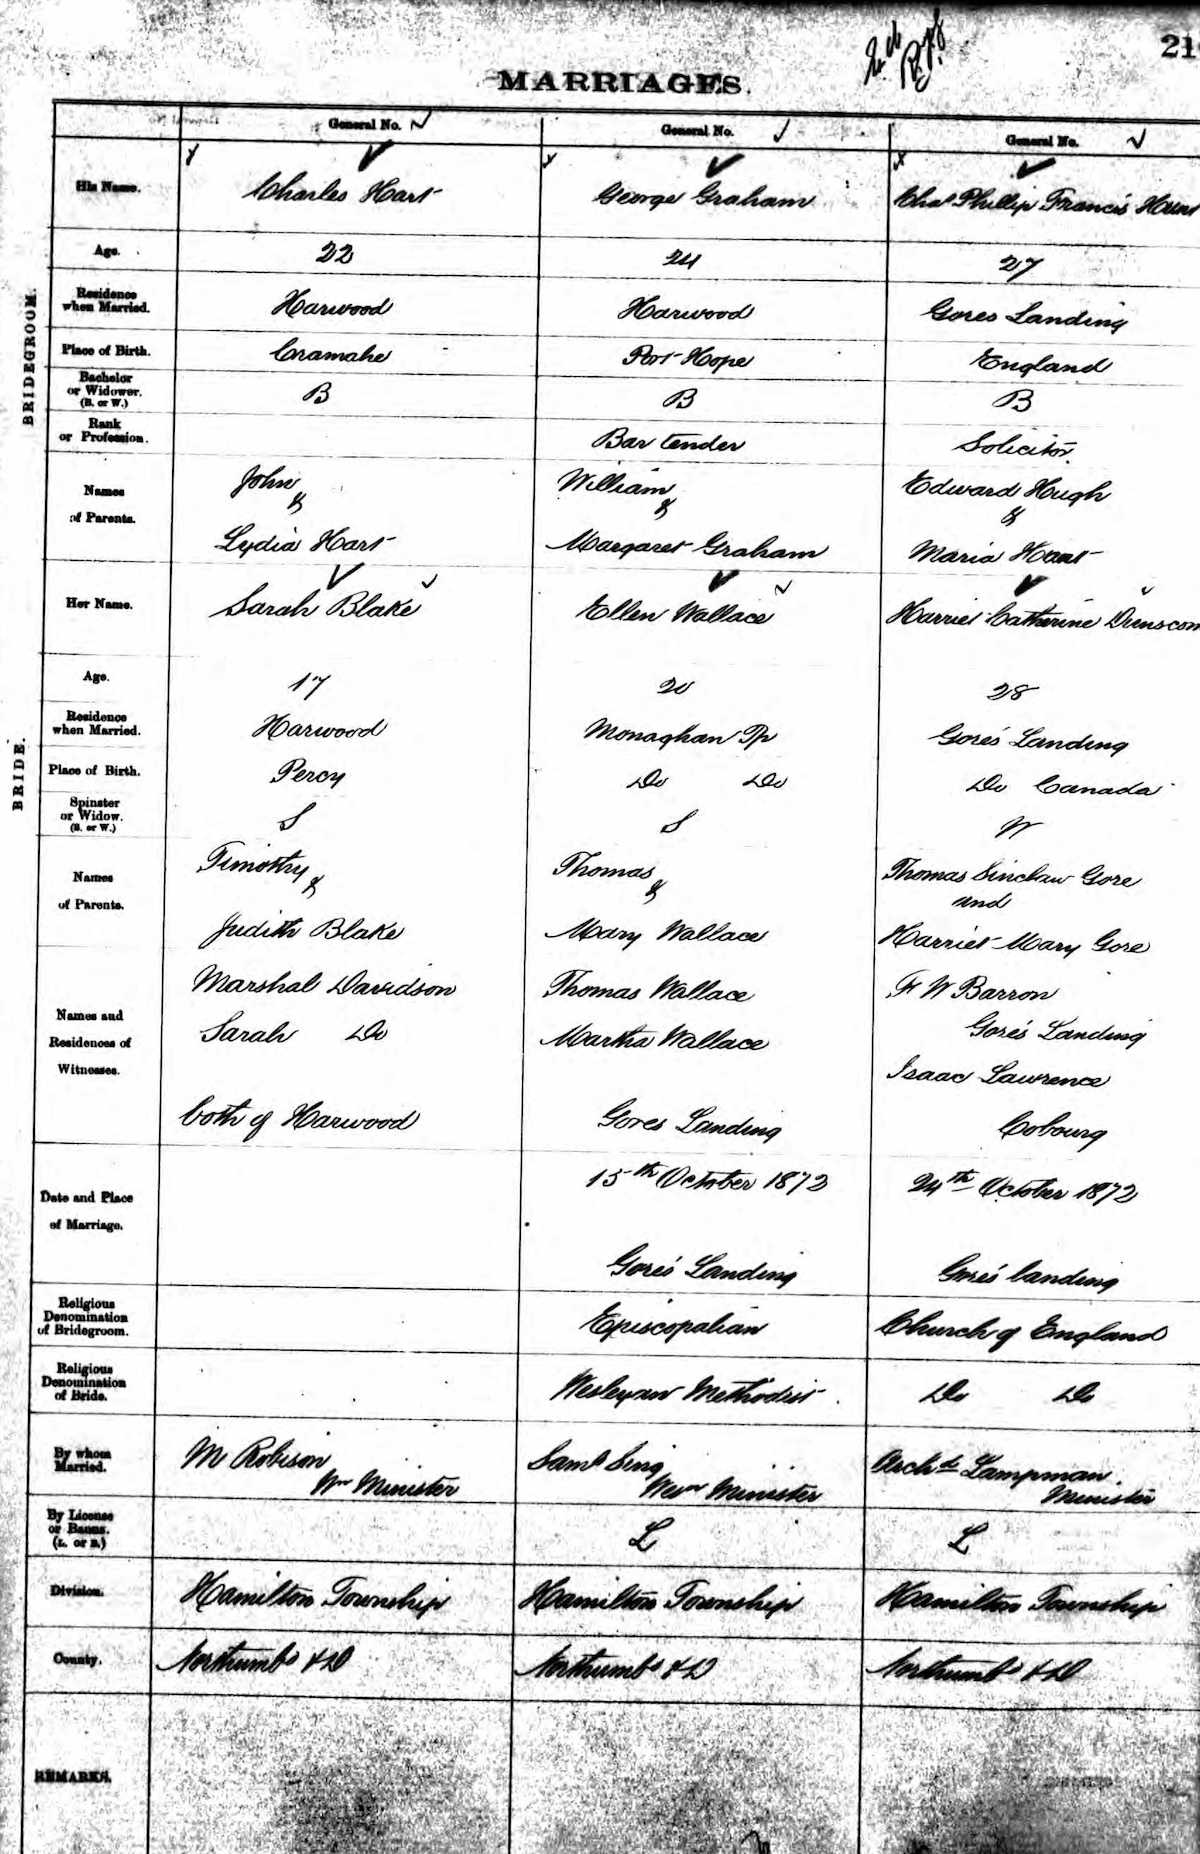 21
MARRIAGES.
General No. General No. General No.
BRIDEGROOM.
His Name. Charles Hart George Graham Chas Phillip Francis
Age. 22 24 27
Residence when Married. Harwood Harwood Gores Landing
Place of Birth. Cramahe Port Hope England
Bachelor or Widower. (B. or W.) B B B
Rank or Profession. Bar tender Solicitor
Names of Parents. John & William & Edward Hugh &
Lydia Hart Margaret Graham Maria
BRIDE.
Her Name. Sarah Blake Ellen Wallace Harriet Catherine
Age. 17 20 28
Residence when Married. Harwood Monaghan Tp Gore's Landing
Place of Birth. Percy Do Do Do Canada
Spinster or Widow. (S. or W.) S S W
Names of Parents. Timothy & Thomas & Thomas Sinclair Gore and
Judith Blake Mary Wallace Harriet Mary Gore
Names and Residences of Witnesses. Marshal Davidson Thomas Wallace F W Barron
Sarah Do Martha Wallace Gore's Landing
Isaac Lawrence
both of Harwood Gores Landing Cobourg
Date and Place of Marriage. 15th October 1872 24th October 1872
Gore's Landing Gore's landing
Religious Denomination of Bridegroom. Episcopalian Church of England
Religious Denomination of Bride. Wesleyan Methodist Do Do
By whom Married. M Robison Saml Sing Archd Lampman.
Wn Minister Wesn Minister Minister
By License or Banns. (L. or B.) L L
Division. Hamilton Township Hamilton Township Hamilton Township
County. Northumbd & D Northumbd & D Northumbd & D
REMARKS.